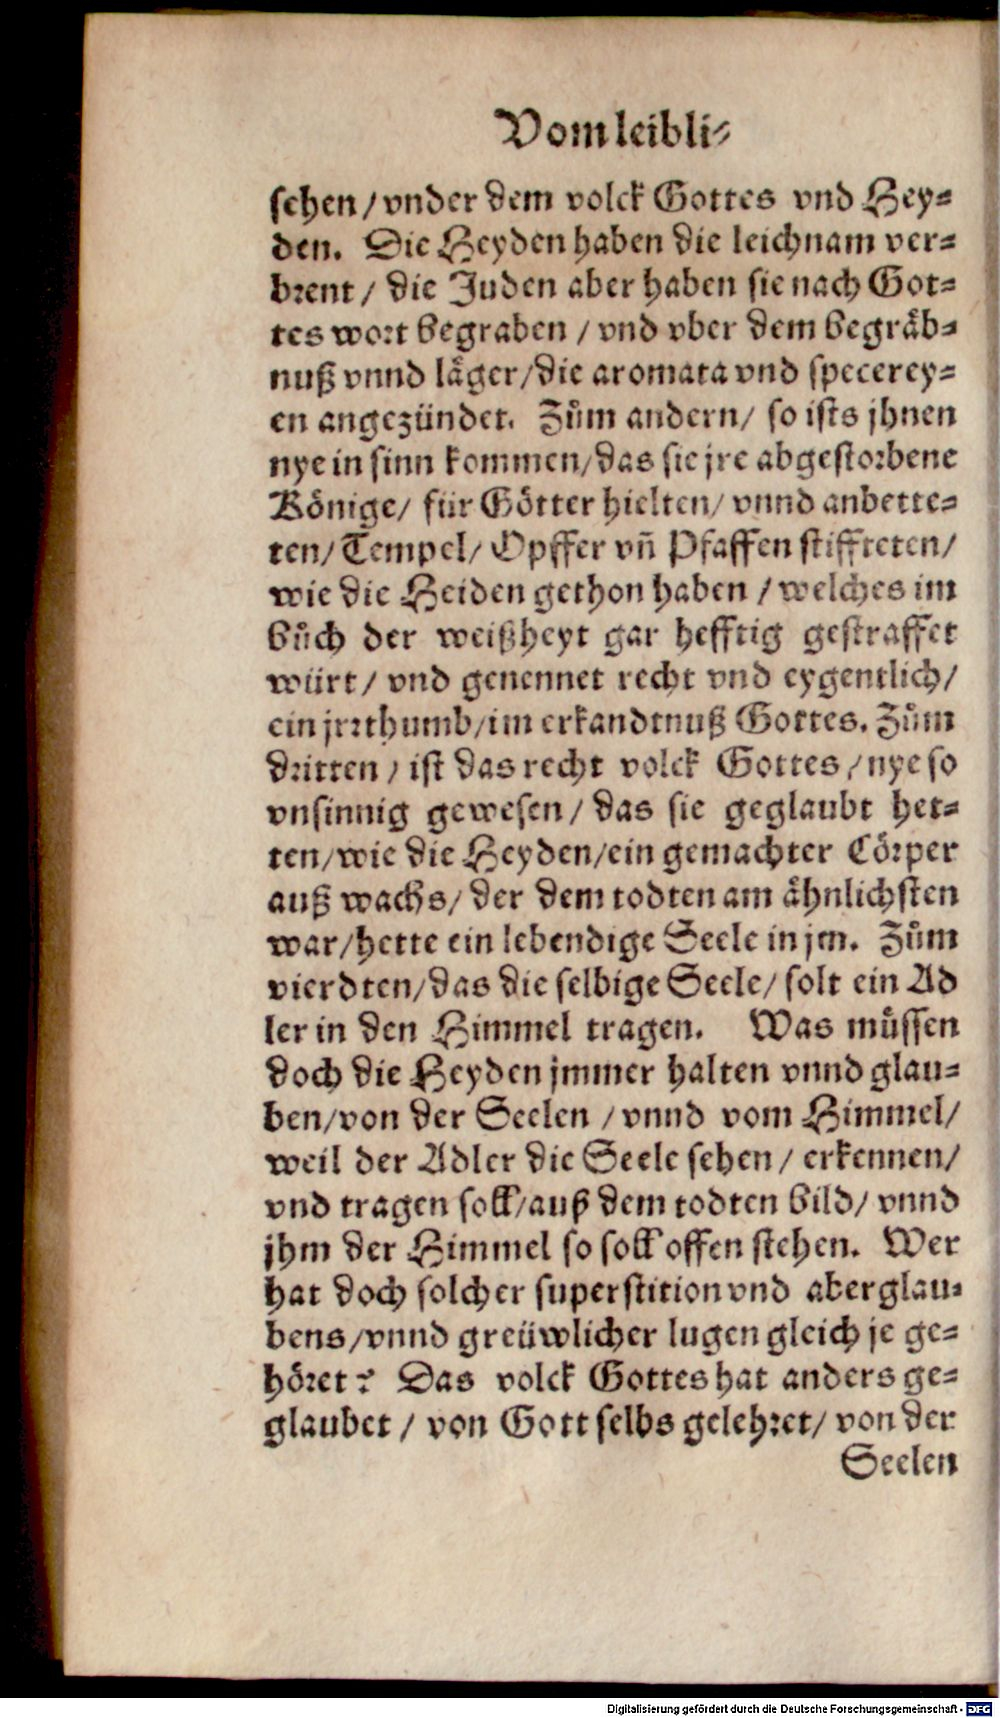 Vom leibli⸗
sehen / vnder dem volck Gottes vnd Hey⸗
den. Die Heyden haben die leichnam ver⸗
brent / die Juden aber haben sie nach Got⸗
tes wort begraben / vnd vber dem begraͤb⸗
nuß vnnd laͤger / die aromata vnd specerey⸗
en angezündet. Zuͦm andern / so ists jhnen
nye in sinn kommen / das sie jre abgestorbene
Könige / für Götter hielten / vnnd anbette⸗
ten / Tempel / Opffer vñ Pfaffen stiffteten /
wie die Heiden gethon haben / welches im
buͦch der weißheyt gar hefftig gestraffet
würt / vnd genennet recht vnd eygentlich /
ein jrrthumb / im erkandtnuß Gottes. Zuͦm
dritten / ist das recht volck Gottes / nye so
vnsinnig gewesen / das sie geglaubt het⸗
ten / wie die Heyden / ein gemachter Cörper
auß wachs / der dem todten am aͤhnlichsten
war / hette ein lebendige Seele in jm. Zuͦm
vierdten / das die selbige Seele / solt ein Ad
ler in den Himmel tragen. Was müssen
doch die Heyden jmmer halten vnnd glau⸗
ben / von der Seelen / vnnd vom Himmel /
weil der Adler die Seele sehen / erkennen /
vnd tragen soll / auß dem todten bild / vnnd
jhm der Himmel so soll offen stehen. Wer
hat doch solcher superstition vnd aberglau⸗
bens / vnnd greüwlicher lugen gleich je ge⸗
höret? Das volck Gottes hat anders ge⸗
glaubet / von Gott selbs gelehret / von der
Seelen
Digitalisierung gefördert durch die Deutsche Forschungsgemeinschaft - DFG